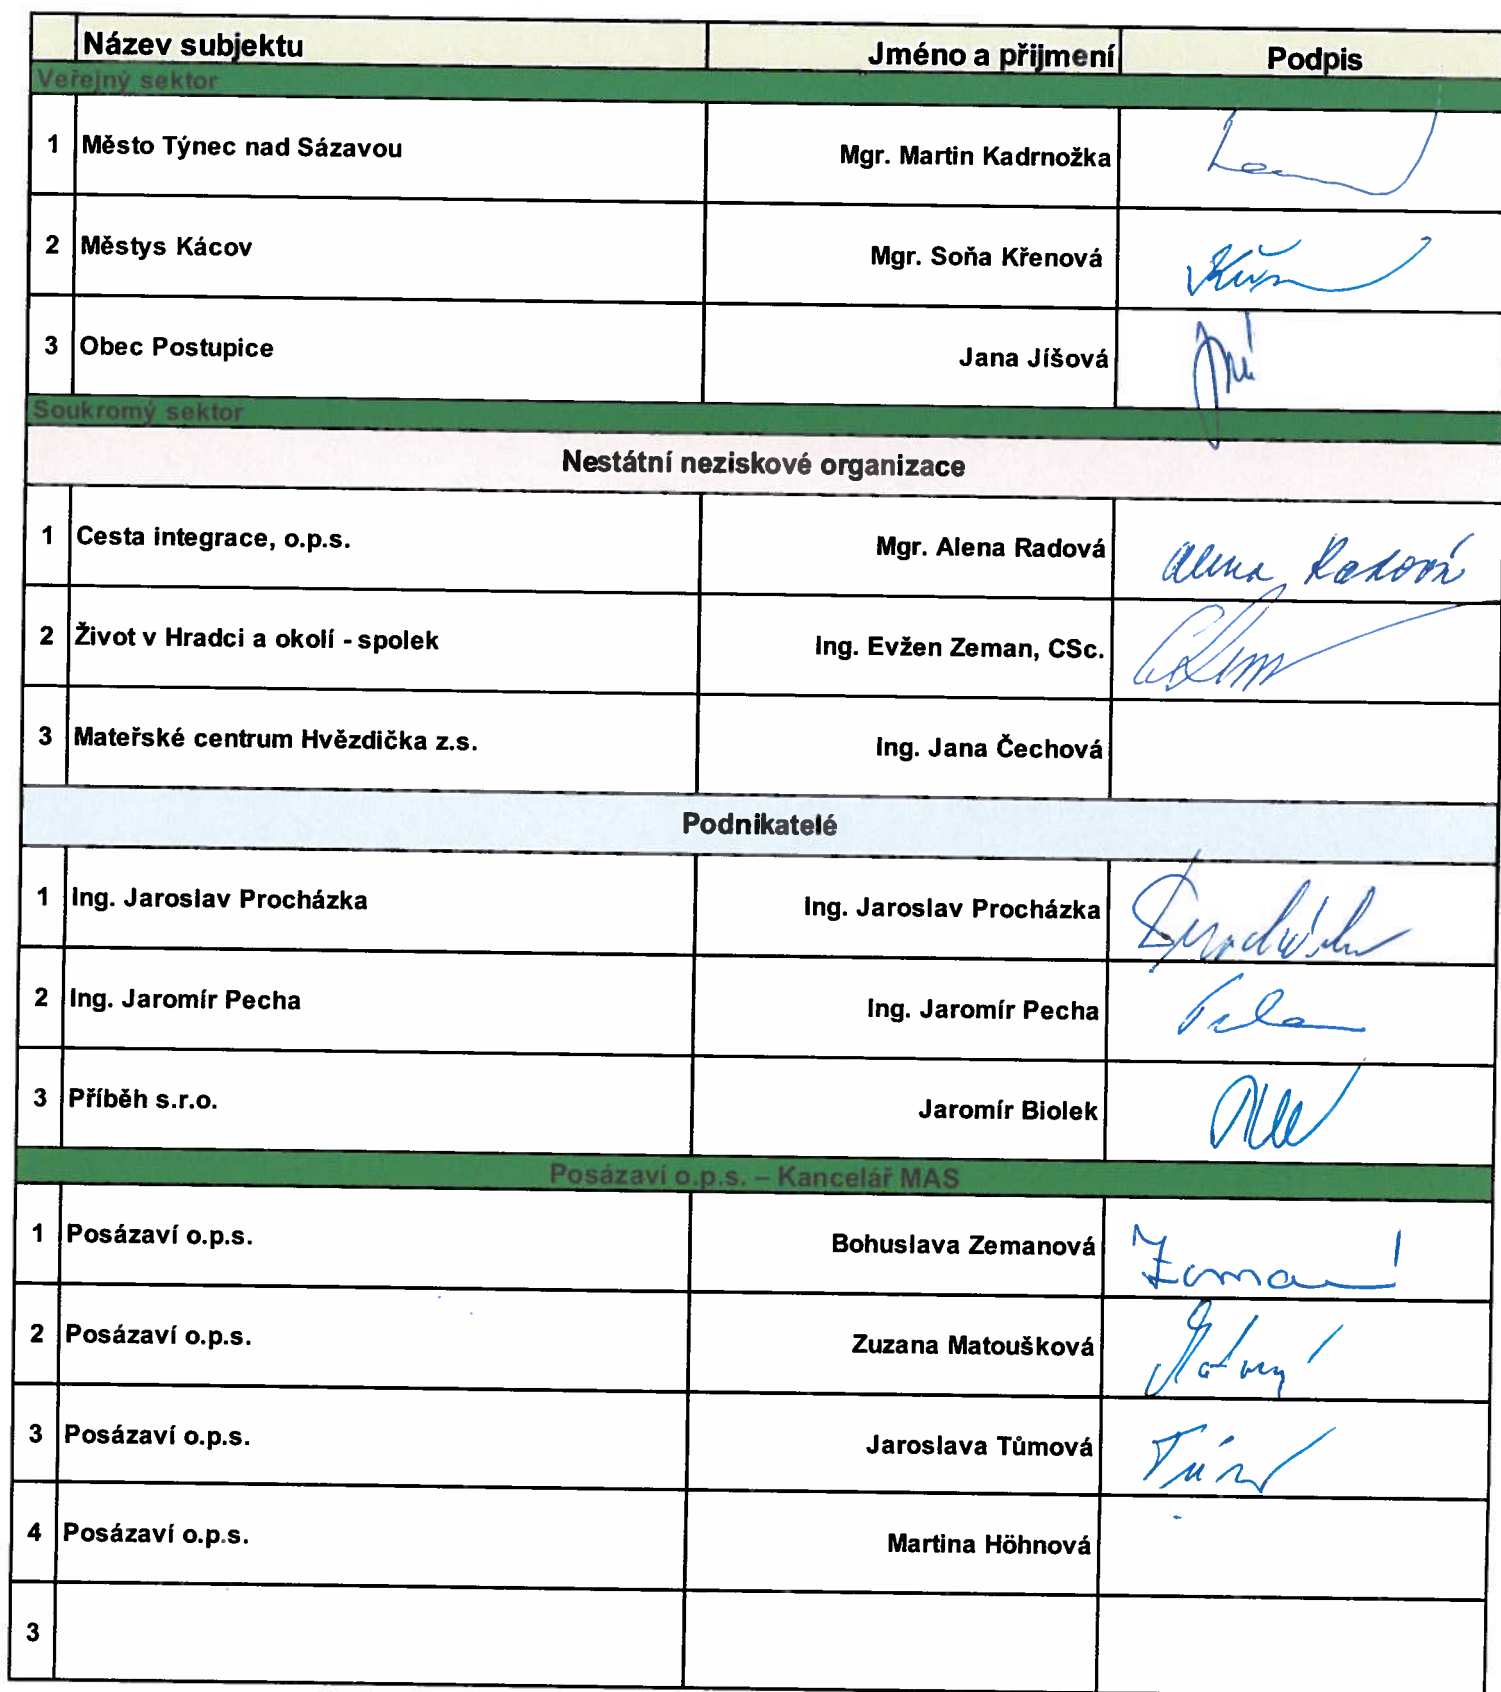 Název subjektu Jméno a přijmení Podpis
Veřejný sektor
1 Město Týnec nad Sázavou Mgr. Martin Kadrnožka
2 Městys Kácov Mgr. Soňa Křenová
3 Obec Postupice Jana Jíšová
Soukromý sektor
Nestátní neziskové organizace
1 Cesta integrace, o.p.s. Mgr. Alena Radová Alena Radová
2 Život v Hradci a okolí - spolek Ing. Evžen Zeman, CSc.
3 Mateřské centrum Hvězdička z.s. Ing. Jana Čechová
Podnikatelé
1 Ing. Jaroslav Procházka Ing. Jaroslav Procházka
2 Ing. Jaromír Pecha Ing. Jaromír Pecha
3 Příběh s.r.o. Jaromír Biolek
Posázaví o.p.s. – Kancelář MAS
1 Posázaví o.p.s. Bohuslava Zemanová
2 Posázaví o.p.s. Zuzana Matoušková
3 Posázaví o.p.s. Jaroslava Tůmová
4 Posázaví o.p.s. Martina Höhnová
3